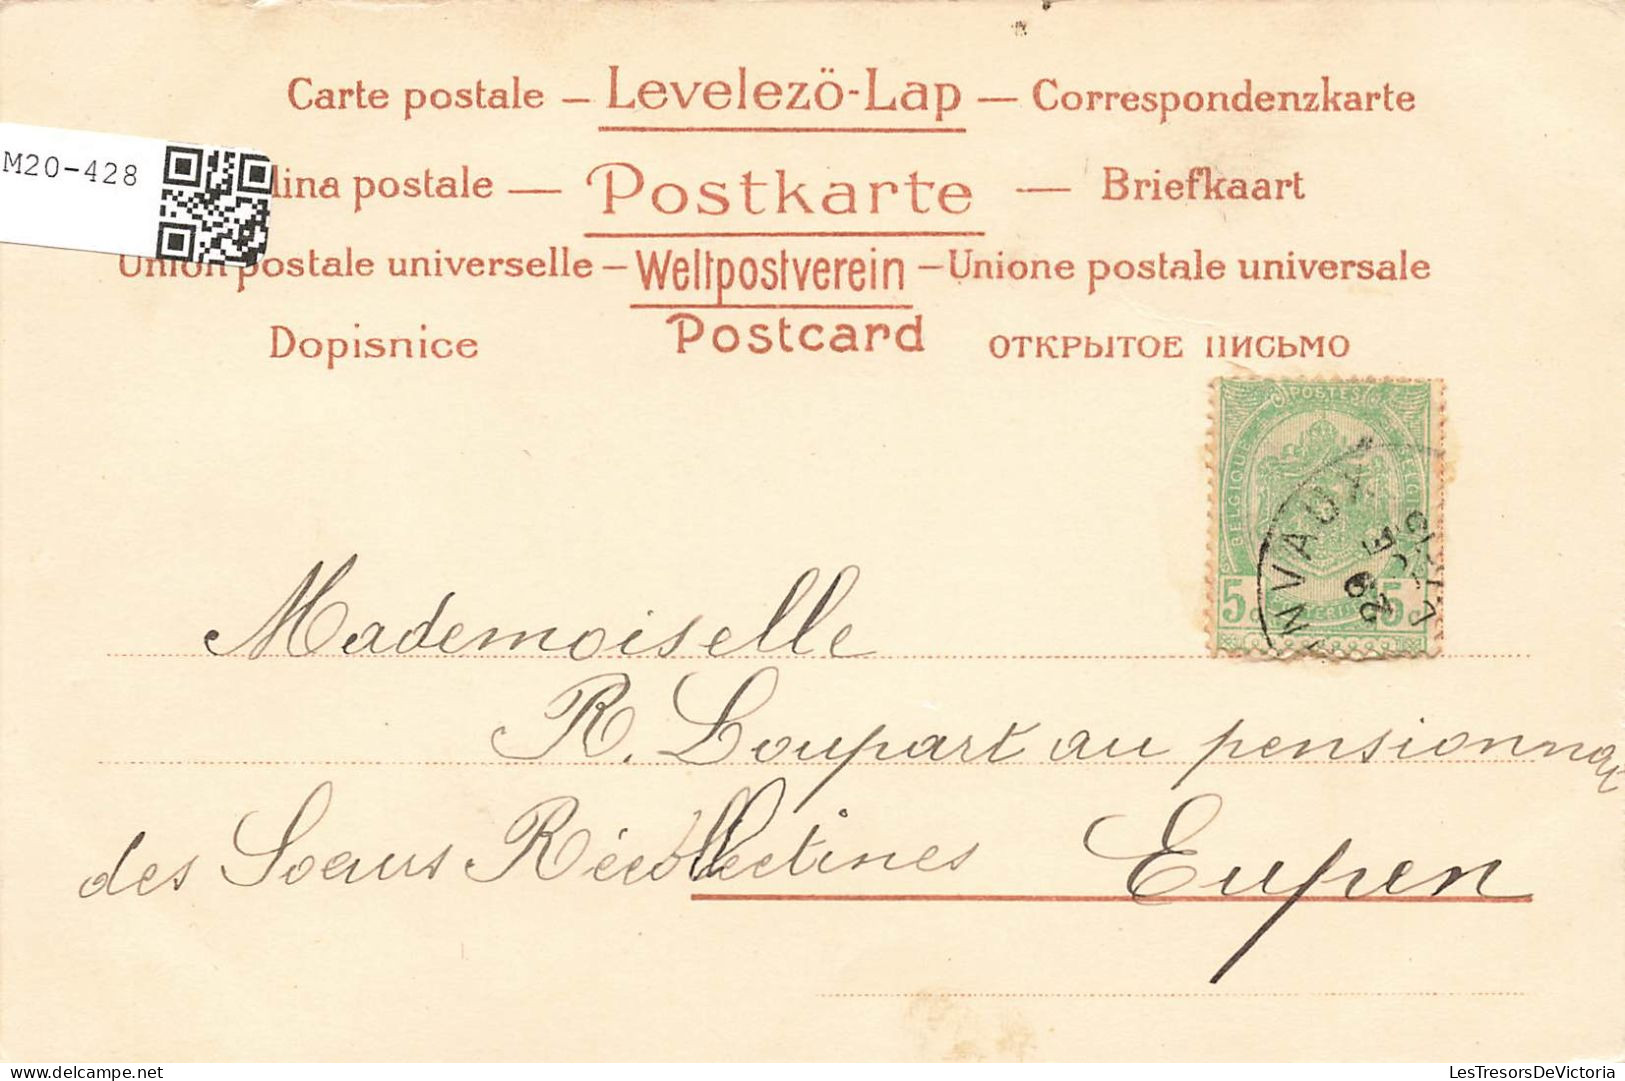 Carte postale – Levelezö-Lap – Correspondenzkarte
M20-428
lina postale — Postkarte — Briefkaart
Union postale universelle – Weltpostverein – Unione postale universale
Dopisnice Postcard ОТКРЫТОЕ ПИСЬМО
POSTES
BELGIQUE
5c 5c
MVAUX
Mademoiselle
R. Loupart au pensionnat
des Soeurs Récollectines Eupen
delcampe.net
LesTresorsDeVictoria